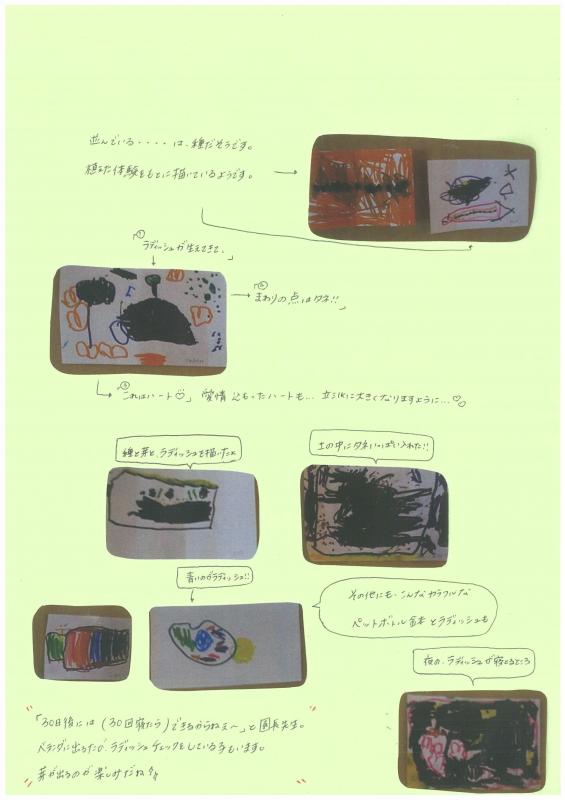 並んでいる・・・・は、種だそうです。
植えた体験をもとに描いているようです。
「①ラディッシュが生えてきて、」
「②まわりの点はタネ!!」
「③これはハート♡」 愛情込もったハートも… 立派に大きくなりますように…♡
種と芽と、ラディッシュを描いたよ
土の中にタネいっぱい入れた!!
青いのがラディッシュ!!
その他にも、こんなカラフルな
ペットボトル鉢とラディッシュも
夜の、ラディッシュが寝てるところ
「30日後には(30回寝たら)できるからねぇ〜」と園長先生。
ベランダに出るたび、ラディッシュチェックをしている子もいます。
芽が出るのが楽しみだね